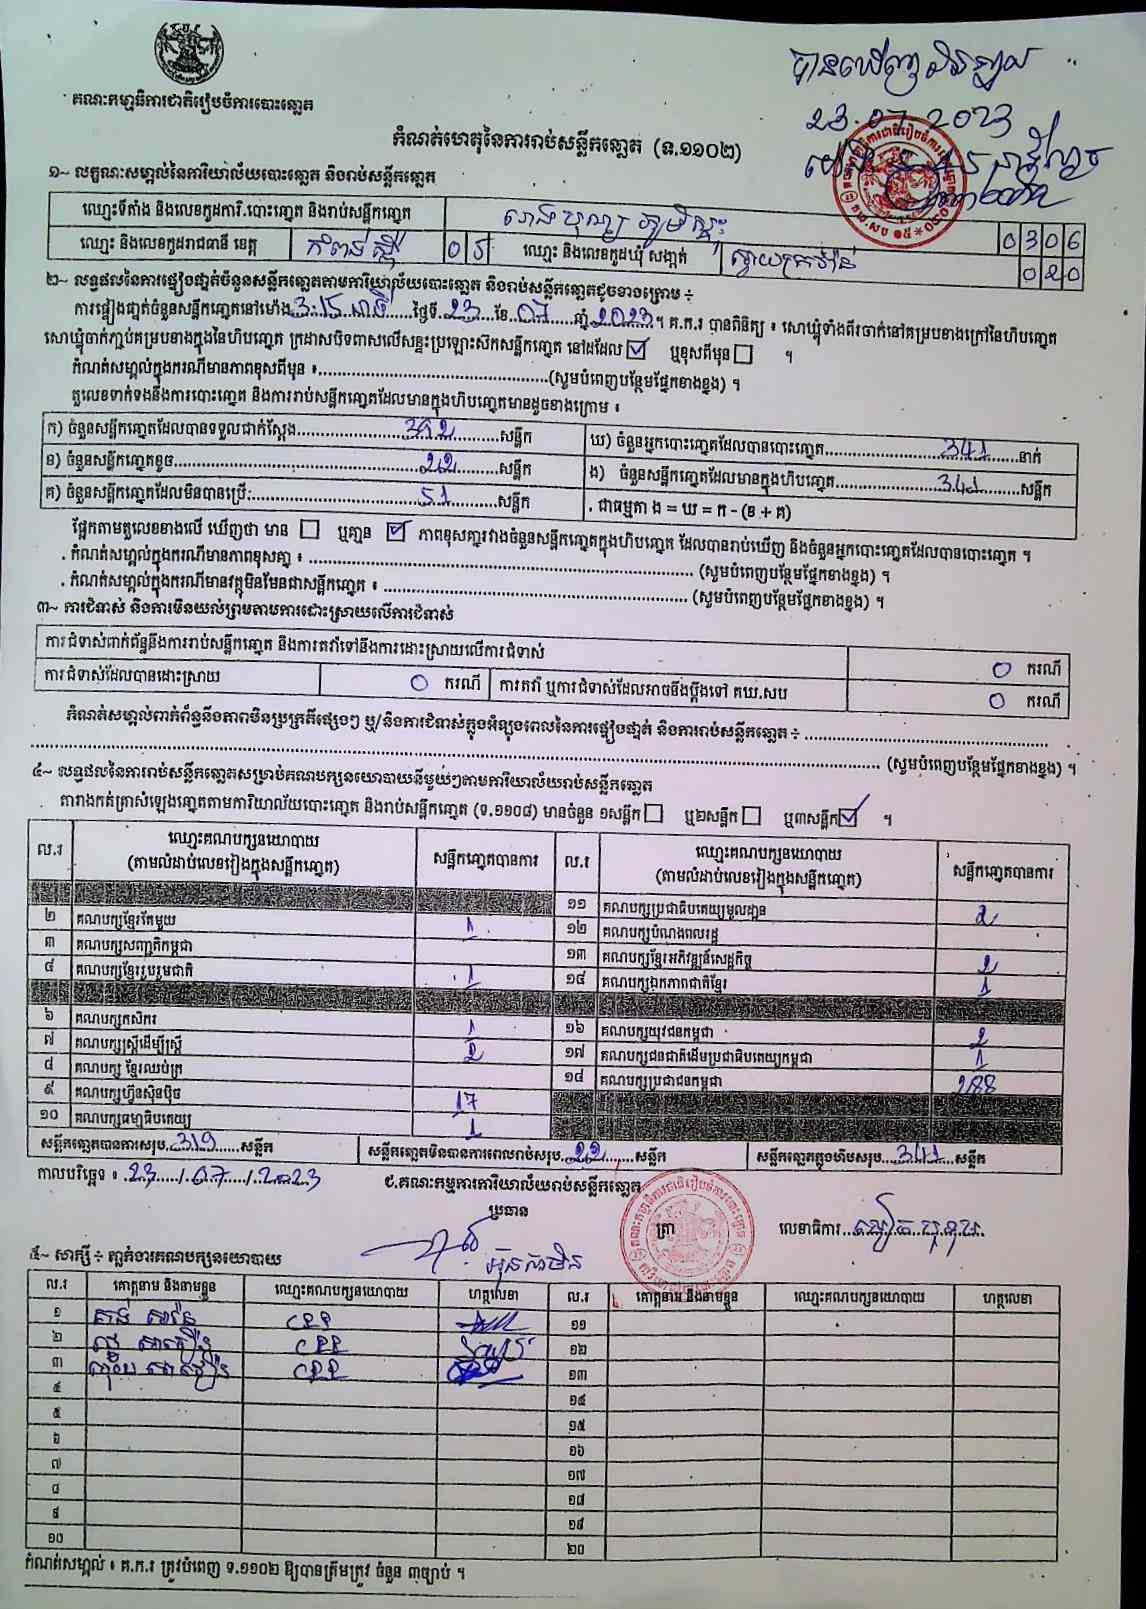 គណៈកម្មាធិការជាតិរៀបចំការបោះឆ្នោត
កំណត់ហេតុនៃការរាប់សន្លឹកឆ្នោត (ទ.១១០២)
23.07.2023
១~ លក្ខណៈសម្គាល់នៃការិយាល័យបោះឆ្នោត និងរាប់សន្លឹកឆ្នោត
ឈ្មោះទីតាំង និងលេខកូដការិ.បោះឆ្នោត និងរាប់សន្លឹកឆ្នោត 0306
ឈ្មោះ និងលេខកូដរាជធានី ខេត្ត កំពង់ស្ពឺ 05 ឈ្មោះ និងលេខកូដឃុំ សង្កាត់ 020
២~ លទ្ធផលនៃការផ្ទៀងផ្ទាត់ចំនួនសន្លឹកឆ្នោតតាមការិយាល័យបោះឆ្នោត និងរាប់សន្លឹកឆ្នោតដូចខាងក្រោម ÷
ការផ្ទៀងផ្ទាត់ចំនួនសន្លឹកឆ្នោតនៅម៉ោង 3:15 នាទី ថ្ងៃទី 23 ខែ 07 ឆ្នាំ 2023 ។ គ.ក.រ បានពិនិត្យ ៖ សោឃ្លុំទាំងពីរចាក់នៅគម្របខាងក្រៅនៃហិបឆ្នោត
សោឃ្លុំចាក់ភ្ជាប់គម្របខាងក្នុងនៃហិបឆ្នោត ក្រដាសបិទពាសលើសន្ទះប្រឡោះសិកសន្លឹកឆ្នោត នៅដដែល ☑ ឬខុសពីមុន ☐ ។
កំណត់សម្គាល់ក្នុងករណីមានភាពខុសពីមុន ៖ (សូមបំពេញបន្ថែមផ្នែកខាងខ្នង) ។
តួលេខទាក់ទងនឹងការបោះឆ្នោត និងការរាប់សន្លឹកឆ្នោតដែលមានក្នុងហិបឆ្នោតមានដូចខាងក្រោម ៖
ក) ចំនួនសន្លឹកឆ្នោតដែលបានទទួលជាក់ស្តែង 392 សន្លឹក ឃ) ចំនួនអ្នកបោះឆ្នោតដែលបានបោះឆ្នោត 341 នាក់
ខ) ចំនួនសន្លឹកឆ្នោតខូច សន្លឹក ង) ចំនួនសន្លឹកឆ្នោតដែលមានក្នុងហិបឆ្នោត 341 សន្លឹក
គ) ចំនួនសន្លឹកឆ្នោតដែលមិនបានប្រើ: 51 សន្លឹក . ជាធម្មតា ង = ឃ = ក - (ខ + គ)
ផ្អែកតាមតួលេខខាងលើ ឃើញថា មាន ☐ ឬគ្មាន ☑ ភាពខុសគ្នារវាងចំនួនសន្លឹកឆ្នោតក្នុងហិបឆ្នោត ដែលបានរាប់ឃើញ និងចំនួនអ្នកបោះឆ្នោតដែលបានបោះឆ្នោត ។
. កំណត់សម្គាល់ក្នុងករណីមានភាពខុសគ្នា ៖ (សូមបំពេញបន្ថែមផ្នែកខាងខ្នង) ។
. កំណត់សម្គាល់ក្នុងករណីមានវត្ថុមិនមែនជាសន្លឹកឆ្នោត ៖ (សូមបំពេញបន្ថែមផ្នែកខាងខ្នង) ។
៣~ ការជំទាស់ និងការមិនយល់ព្រមតាមការដោះស្រាយលើការជំទាស់
ការជំទាស់ពាក់ព័ន្ធនឹងការរាប់សន្លឹកឆ្នោត និងការតវ៉ាទៅនឹងការដោះស្រាយលើការជំទាស់ 0 ករណី
ការជំទាស់ដែលបានដោះស្រាយ 0 ករណី ការតវ៉ា ឬការជំទាស់ដែលអាចនឹងប្តឹងទៅ គឃ.សប 0 ករណី
កំណត់សម្គាល់ពាក់ព័ន្ធនឹងភាពមិនប្រក្រតីផ្សេងៗ ឬ/និងការជំទាស់ក្នុងអំឡុងពេលនៃការផ្ទៀងផ្ទាត់ និងការរាប់សន្លឹកឆ្នោត ÷
(សូមបំពេញបន្ថែមផ្នែកខាងខ្នង) ។
៤~ លទ្ធផលនៃការរាប់សន្លឹកឆ្នោតសម្រាប់គណបក្សនយោបាយនីមួយៗតាមការិយាល័យរាប់សន្លឹកឆ្នោត
តារាងកត់ត្រាសំឡេងឆ្នោតតាមការិយាល័យបោះឆ្នោត និងរាប់សន្លឹកឆ្នោត (ទ.១១០៨) មានចំនួន ១សន្លឹក ☐ ឬ២សន្លឹក ☐ ឬ៣សន្លឹក ☑ ។
ល.រ ឈ្មោះគណបក្សនយោបាយ (តាមលំដាប់លេខរៀងក្នុងសន្លឹកឆ្នោត) សន្លឹកឆ្នោតបានការ ល.រ ឈ្មោះគណបក្សនយោបាយ (តាមលំដាប់លេខរៀងក្នុងសន្លឹកឆ្នោត) សន្លឹកឆ្នោតបានការ
១១ គណបក្សប្រជាធិបតេយ្យមូលដ្ឋាន 2
២ គណបក្សខ្មែរតែមួយ 1 ១២ គណបក្សបំណងពលរដ្ឋ
៣ គណបក្សសញ្ជាតិកម្ពុជា ១៣ គណបក្សខ្មែរអភិវឌ្ឍន៍សេដ្ឋកិច្ច 2
៤ គណបក្សខ្មែររួបរួមជាតិ 1 ១៤ គណបក្សឯកភាពជាតិខ្មែរ 1
៦ គណបក្សកសិករ 1 ១៦ គណបក្សយុវជនកម្ពុជា 2
៧ គណបក្សស្ត្រីដើម្បីស្ត្រី 2 ១៧ គណបក្សជនជាតិដើមប្រជាធិបតេយ្យកម្ពុជា 1
៨ គណបក្ស ខ្មែរឈប់ក្រ ១៨ គណបក្សប្រជាជនកម្ពុជា 288
៩ គណបក្សហ្វ៊ុនស៊ិនប៉ិច 17
១០ គណបក្សធម្មាធិបតេយ្យ 1
សន្លឹកឆ្នោតបានការសរុប 319 សន្លឹក សន្លឹកឆ្នោតមិនបានការពេលរាប់សរុប 22 សន្លឹក សន្លឹកឆ្នោតក្នុងហិបសរុប 341 សន្លឹក
កាលបរិច្ឆេទ ៖ 23/07/2023 ជ.គណៈកម្មការការិយាល័យរាប់សន្លឹកឆ្នោត
ប្រធាន ត្រា លេខាធិការ
៥~ សាក្សី ÷ ភ្នាក់ងារគណបក្សនយោបាយ
ល.រ គោត្តនាម និងនាមខ្លួន ឈ្មោះគណបក្សនយោបាយ ហត្ថលេខា ល.រ គោត្តនាម និងនាមខ្លួន ឈ្មោះគណបក្សនយោបាយ ហត្ថលេខា
១ CPP ១១
២ CPP ១២
៣ CPP ១៣
៤ ១៤
៥ ១៥
៦ ១៦
៧ ១៧
៨ ១៨
៩ ១៩
១០ ២០
កំណត់សម្គាល់ ៖ គ.ក.រ ត្រូវបំពេញ ទ.១១០២ ឱ្យបានត្រឹមត្រូវ ចំនួន ៣ច្បាប់ ។